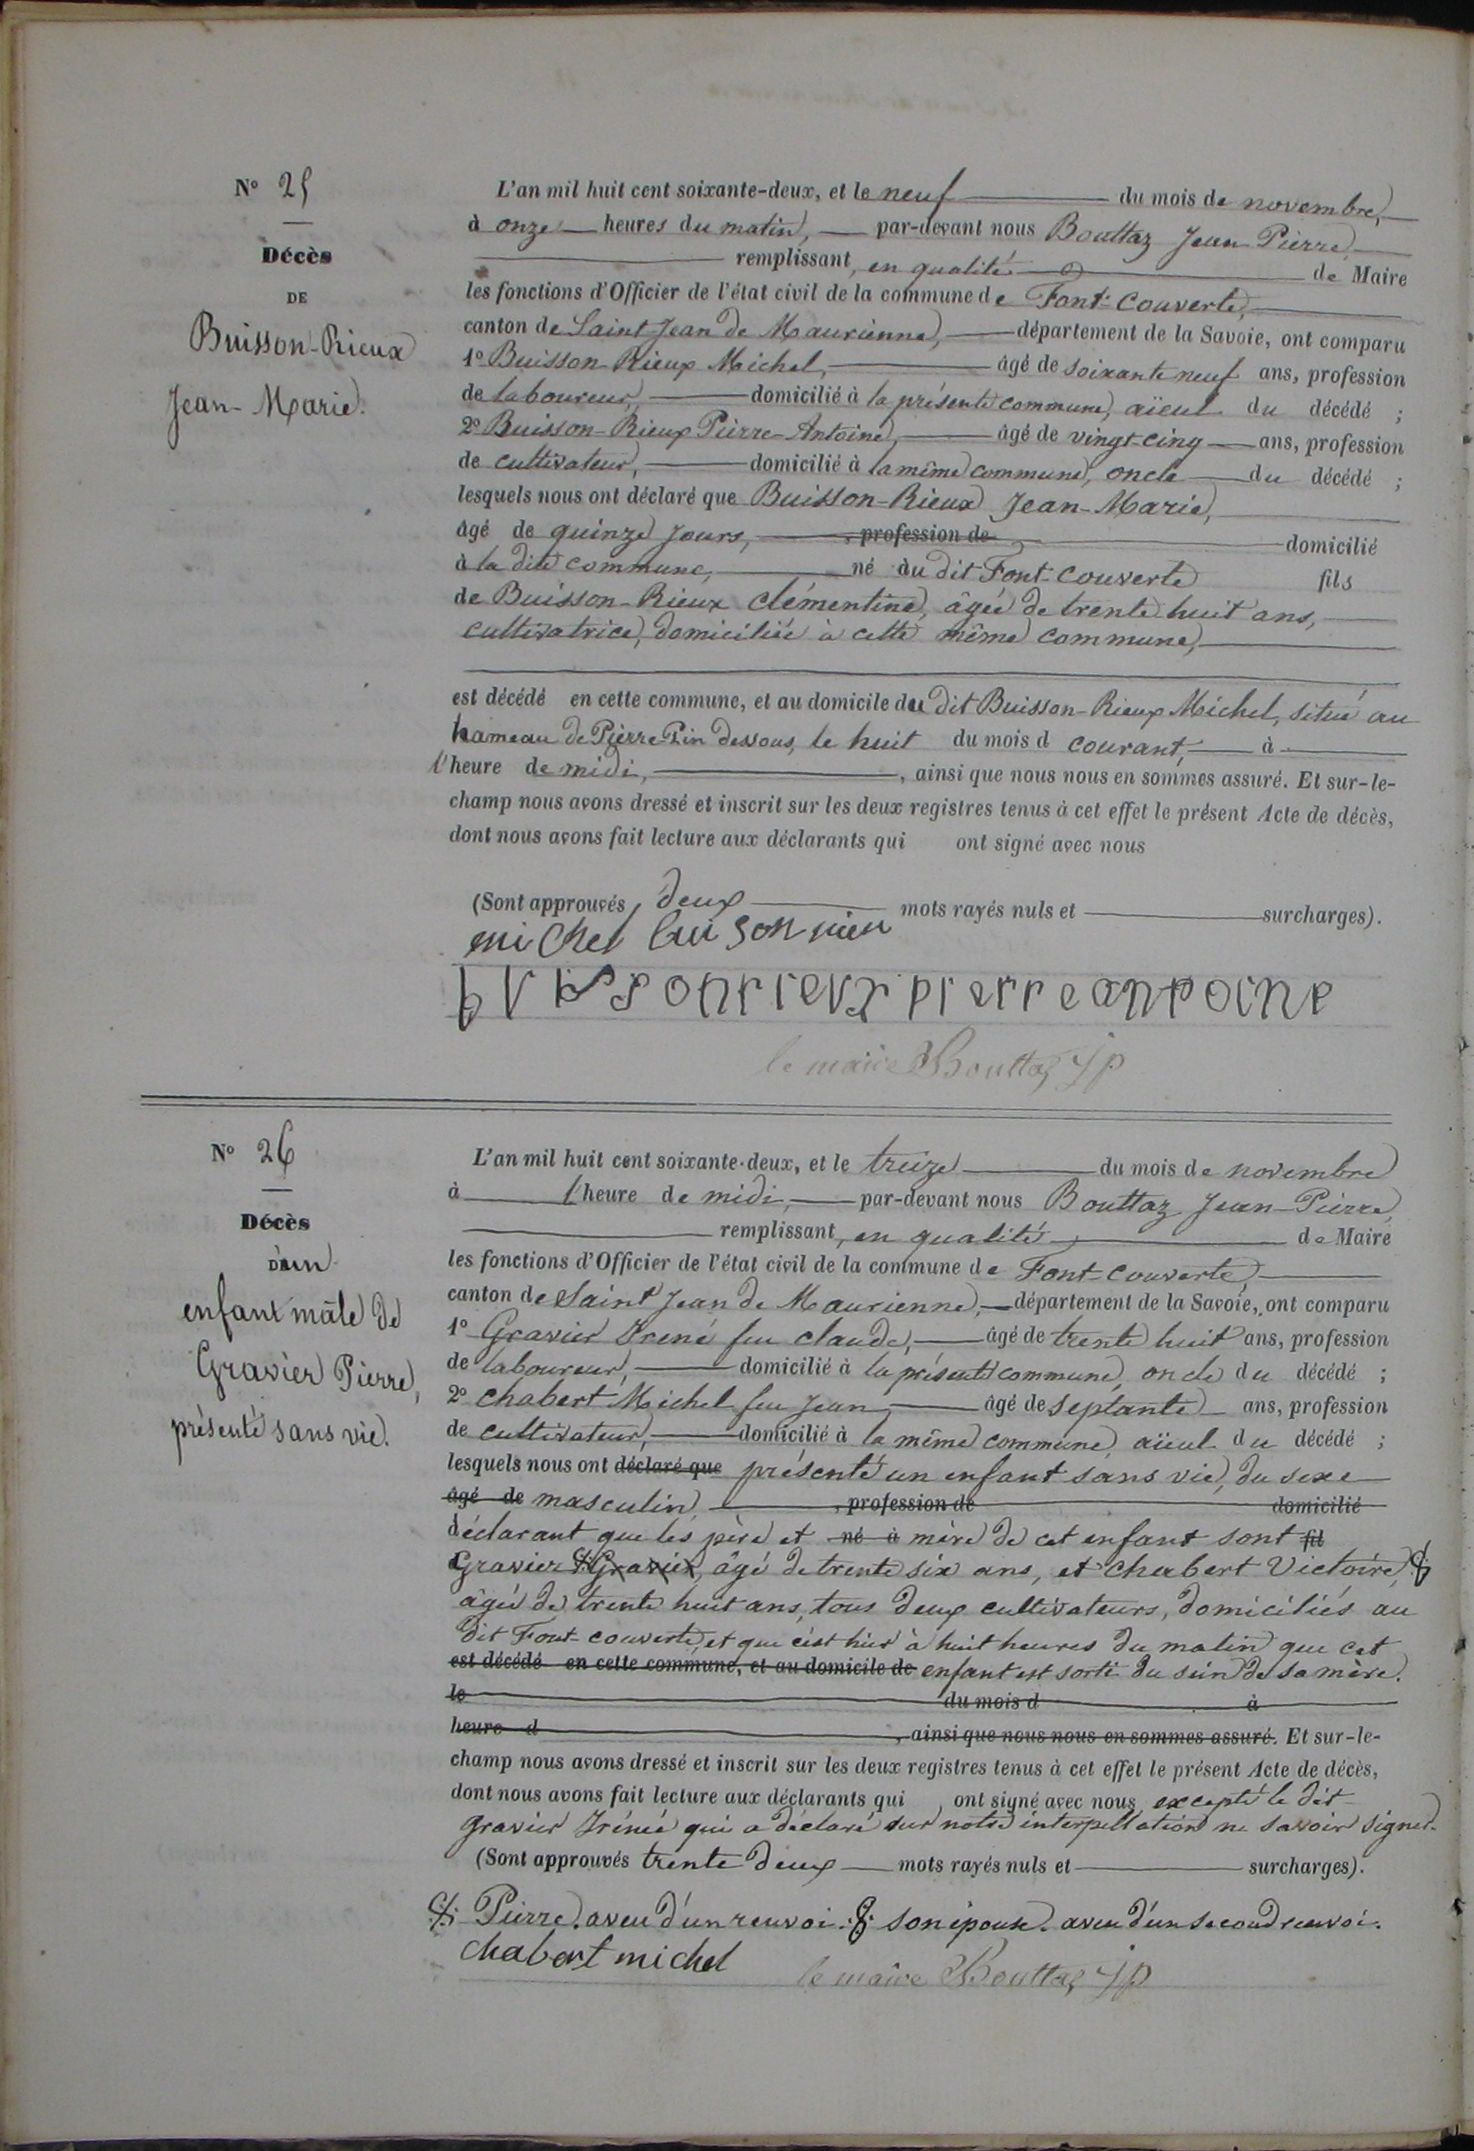 N° 25
Décès
DE
Buisson-Rieux
Jean-Marie.
L'an mil huit cent soixante-deux, et le neuf du mois de novembre,
à onze heures du matin, par-devant nous Bouttaz Jean-Pierre,
remplissant, en qualité de Maire
les fonctions d'Officier de l'état civil de la commune de Font-Couverte,
canton de Saint Jean de Maurienne, département de la Savoie, ont comparu
1° Buisson-Rieux Michel, âgé de soixante neuf ans, profession
de laboureur, domicilié à la présente commune, aïeul du décédé ;
2° Buisson-Rieux Pierre-Antoine, âgé de vingt-cinq ans, profession
de cultivateur, domicilié à la même commune, oncle du décédé ;
lesquels nous ont déclaré que Buisson-Rieux Jean-Marie,
âgé de quinze jours, , profession de domicilié
à la dite commune, né au dit Font-Couverte fils
de Buisson-Rieux Clémentine, âgée de trente huit ans,
cultivatrice, domiciliée à cette même commune,
est décédé en cette commune, et au domicile du dit Buisson-Rieux Michel, situé au
hameau de Pierre-Pin dessous, le huit du mois d courant, à
l'heure de midi, , ainsi que nous nous en sommes assuré. Et sur-le-
champ nous avons dressé et inscrit sur les deux registres tenus à cet effet le présent Acte de décès,
dont nous avons fait lecture aux déclarants qui ont signé avec nous
(Sont approuvés deux mots rayés nuls et surcharges).
michel buison rieu
buissonrieux pierre antoine
le maire Bouttaz JP
N° 26
Décès
D'un
enfant mâle de
Gravier Pierre,
présenté sans vie.
L'an mil huit cent soixante-deux, et le treize du mois de novembre
à l'heure de midi, par-devant nous Bouttaz Jean-Pierre,
remplissant, en qualité de Maire
les fonctions d'Officier de l'état civil de la commune de Font-Couverte,
canton de Saint Jean de Maurienne, département de la Savoie, ont comparu
1° Gravier Irené feu Claude, âgé de trente huit ans, profession
de laboureur, domicilié à la présente commune, oncle du décédé ;
2° Chabert Michel feu Jean, âgé de septante ans, profession
de cultivateur, domicilié à la même commune, aïeul du décédé ;
lesquels nous ont déclaré que présenté un enfant sans vie, du sexe
âgé de masculin, , profession de domicilié
déclarant que les père et né à mère de cet enfant sont fil
Gravier Gravier, âgé de trente six ans, et Chabert Victoire,
âgée de trente huit ans, tous deux cultivateurs, domiciliés au
dit Font-couverte, et que c'est hier à huit heures du matin que cet
est décédé en cette commune, et au domicile de enfant est sorti du sein de sa mère.
le du mois d à
heure d , ainsi que nous nous en sommes assuré. Et sur-le-
champ nous avons dressé et inscrit sur les deux registres tenus à cet effet le présent Acte de décès,
dont nous avons fait lecture aux déclarants qui ont signé avec nous, excepté le dit
Gravier Irénée qui a déclaré sur notre interpellation ne savoir signer.
(Sont approuvés trente deux mots rayés nuls et surcharges).
Pierre. aveu d'un renvoi. son épouse. aveu d'un second renvoi.
chabert michel
le maire Bouttaz JP